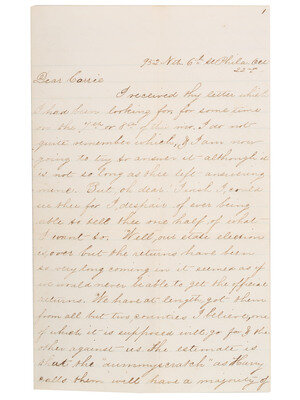 1
932 Nth 6th St Phila Oct
22nd
Dear Carrie
I received thy letter which
I had been looking for for some time
on the 7th or 8th of this mo. I do not
quite remember which, & I am now
going to try to answer it although it
is not so long as thee left answering
mine. But oh dear I wish I could
see thee for I despair of ever being
able to tell thee one half of what
I want to. Well, our state election
is over but the returns have been
so very long coming in it seemed as if
we would never be able to get the official
returns. We have at length got them
from all but two counties I believe, one
of which it is supposed will go for & the
other against us the estimate is
that the "dummyscratch" as Harry
calls them will have a majority of